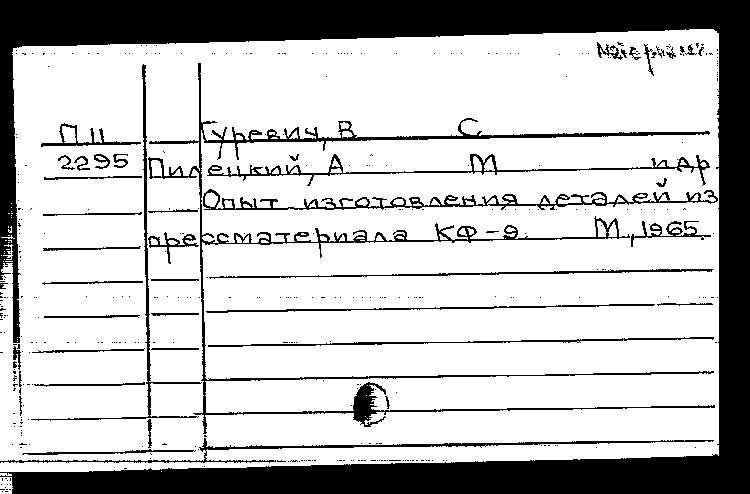 П.11 Гуревич, В С
2295 Пилецкий, А М и др.
Опыт изготовления деталей из
прессматериала КФ-9. М., 1965.